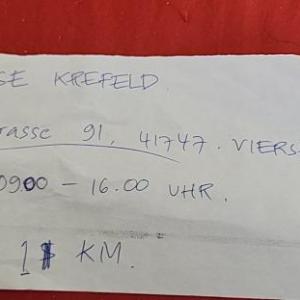 SE KREFELD.
rasse 91, 41747. VIERS
09.00 - 16.00 UHR.
1 KM.